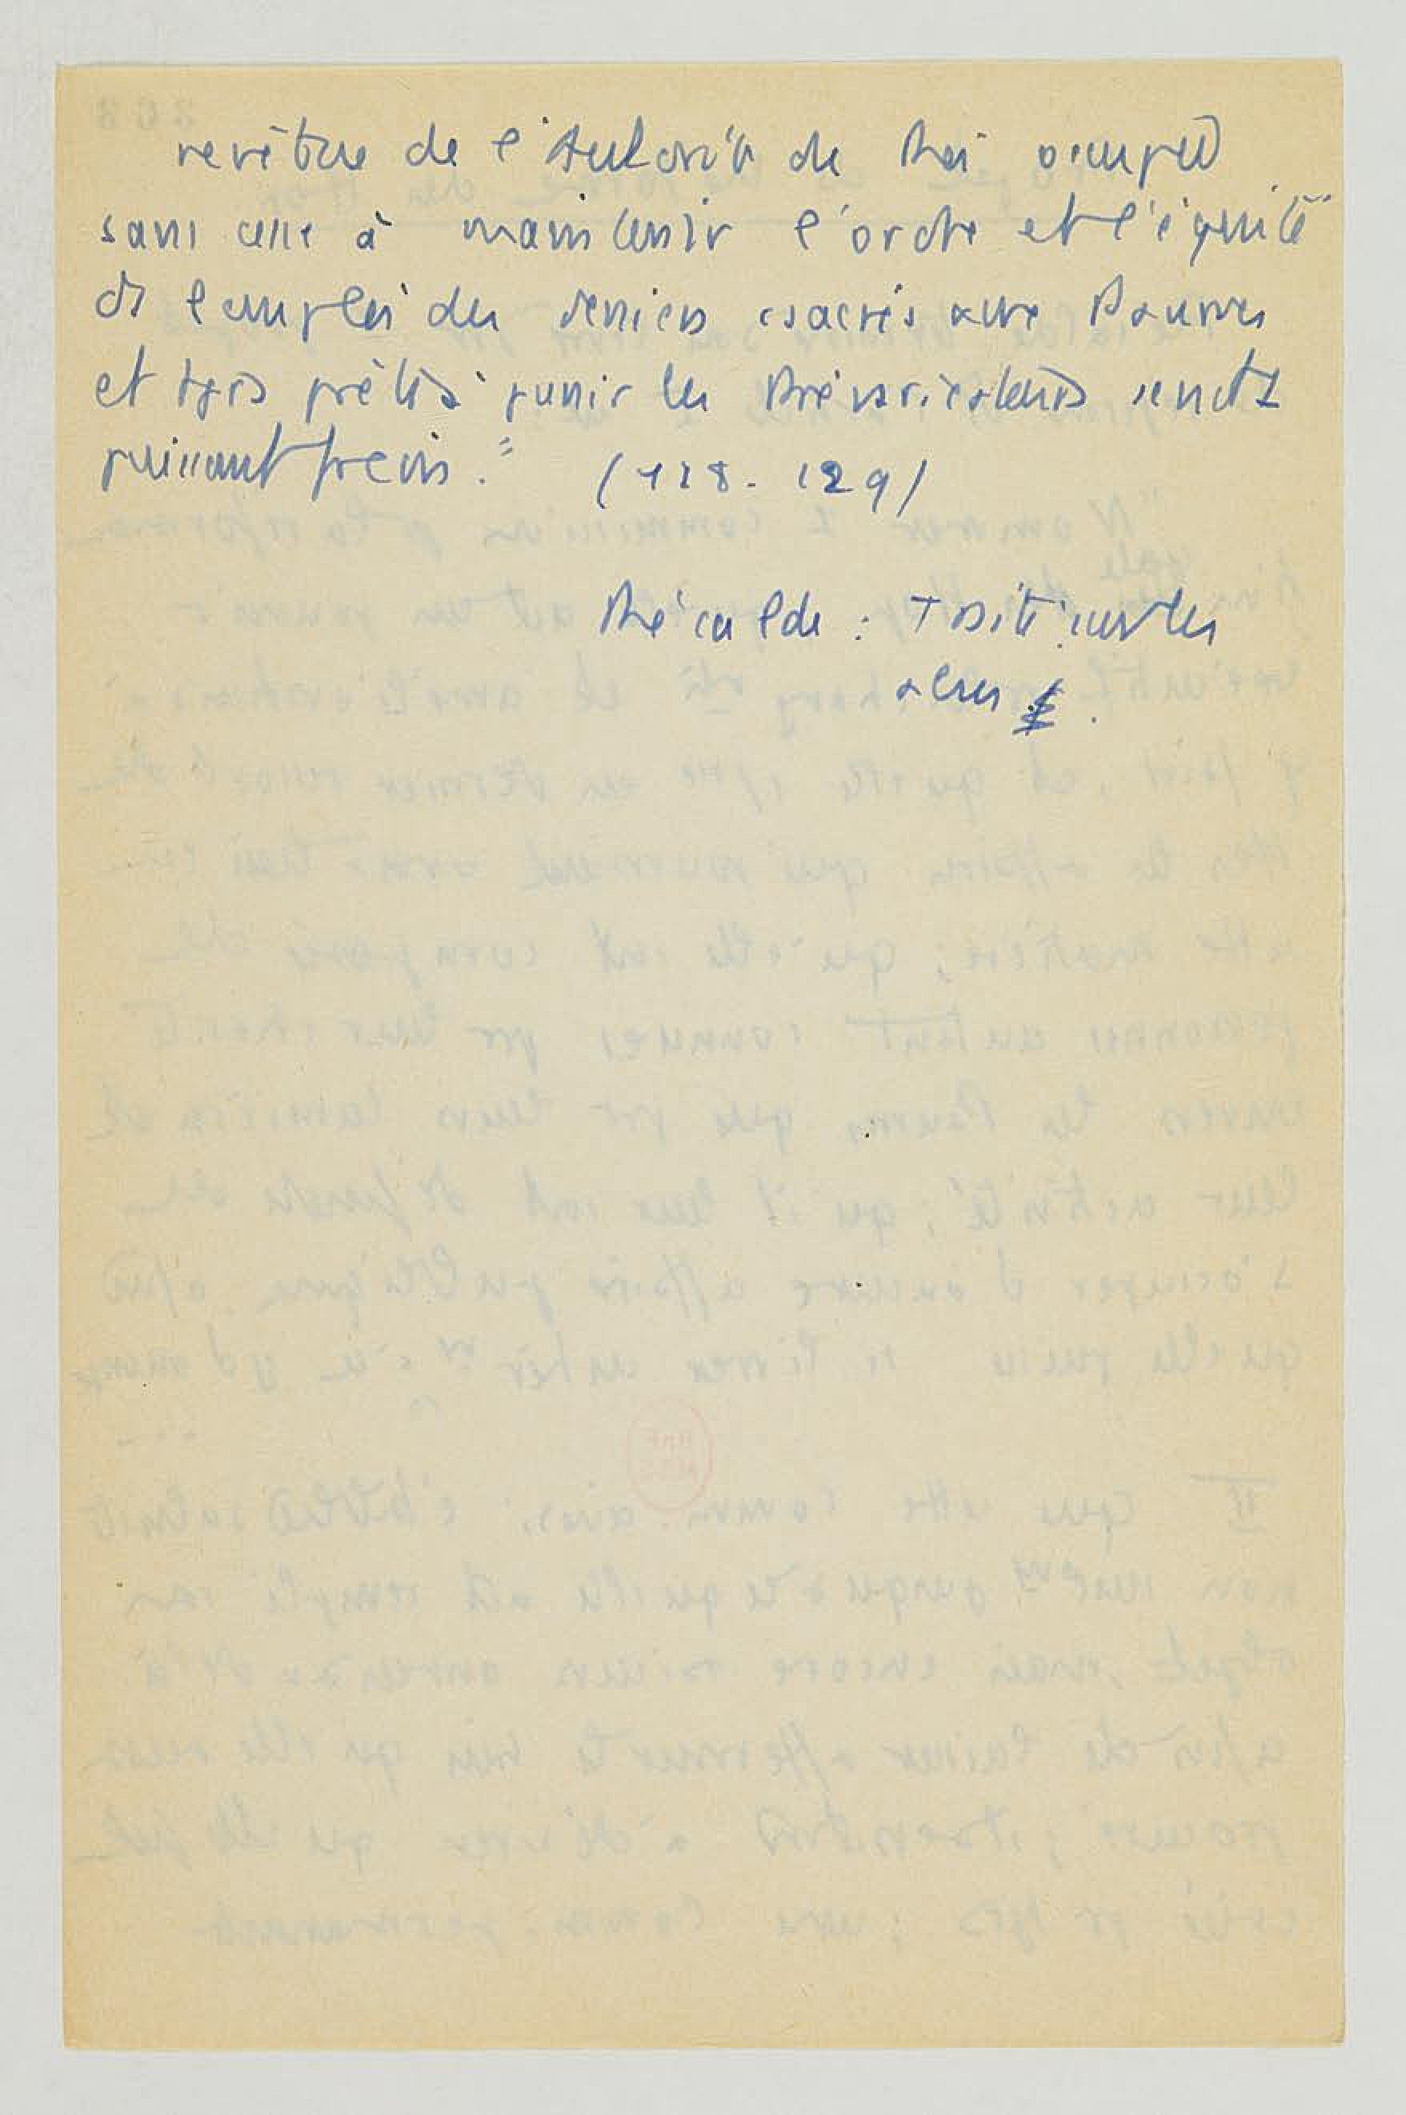 revêtue de l'Autorité du Roi occupée
sans cesse à maintenir l'ordre et l'équité
ds l'emploi des deniers csacrés aux Pauvres
et tjrs prête à punir les Prévaricateurs
puissant frein." (128-129)
Récalde : Traité sur les
abus